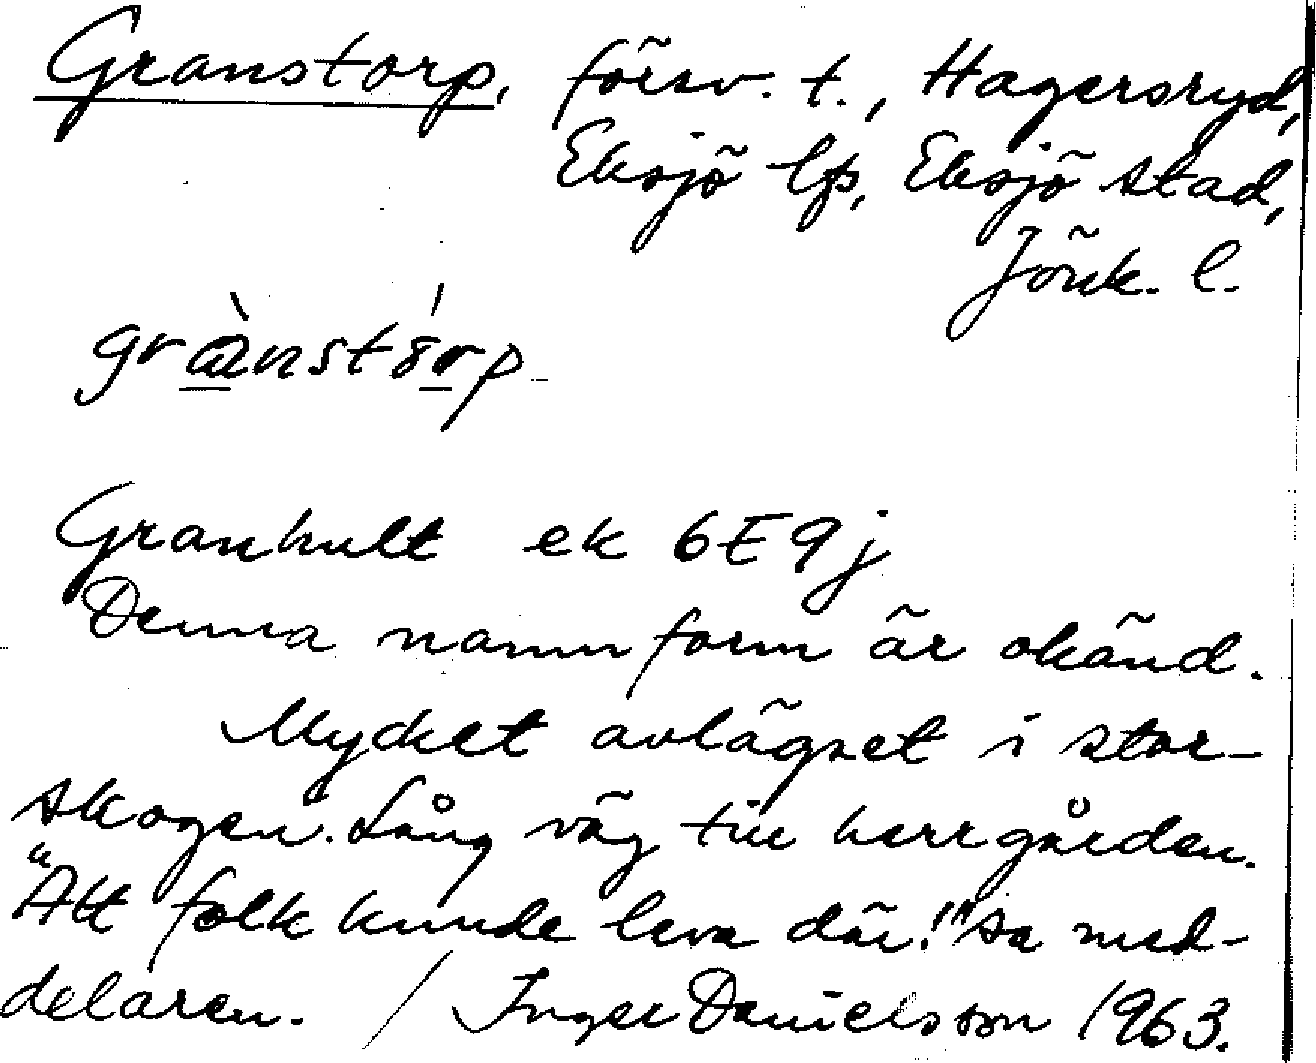 Granstorp, försv. t., Hagersryd,
Eksjö lfs, Eksjö stad,
Jönk. l.
grànstórp
Granhult ek 6E9j
Denna namnform är okänd.
Mycket avlägset i stor-
skogen. Lång väg till herrgården.
"Att folk kunde leva där!" sa med-
delaren. / Inger Danielsson 1963.